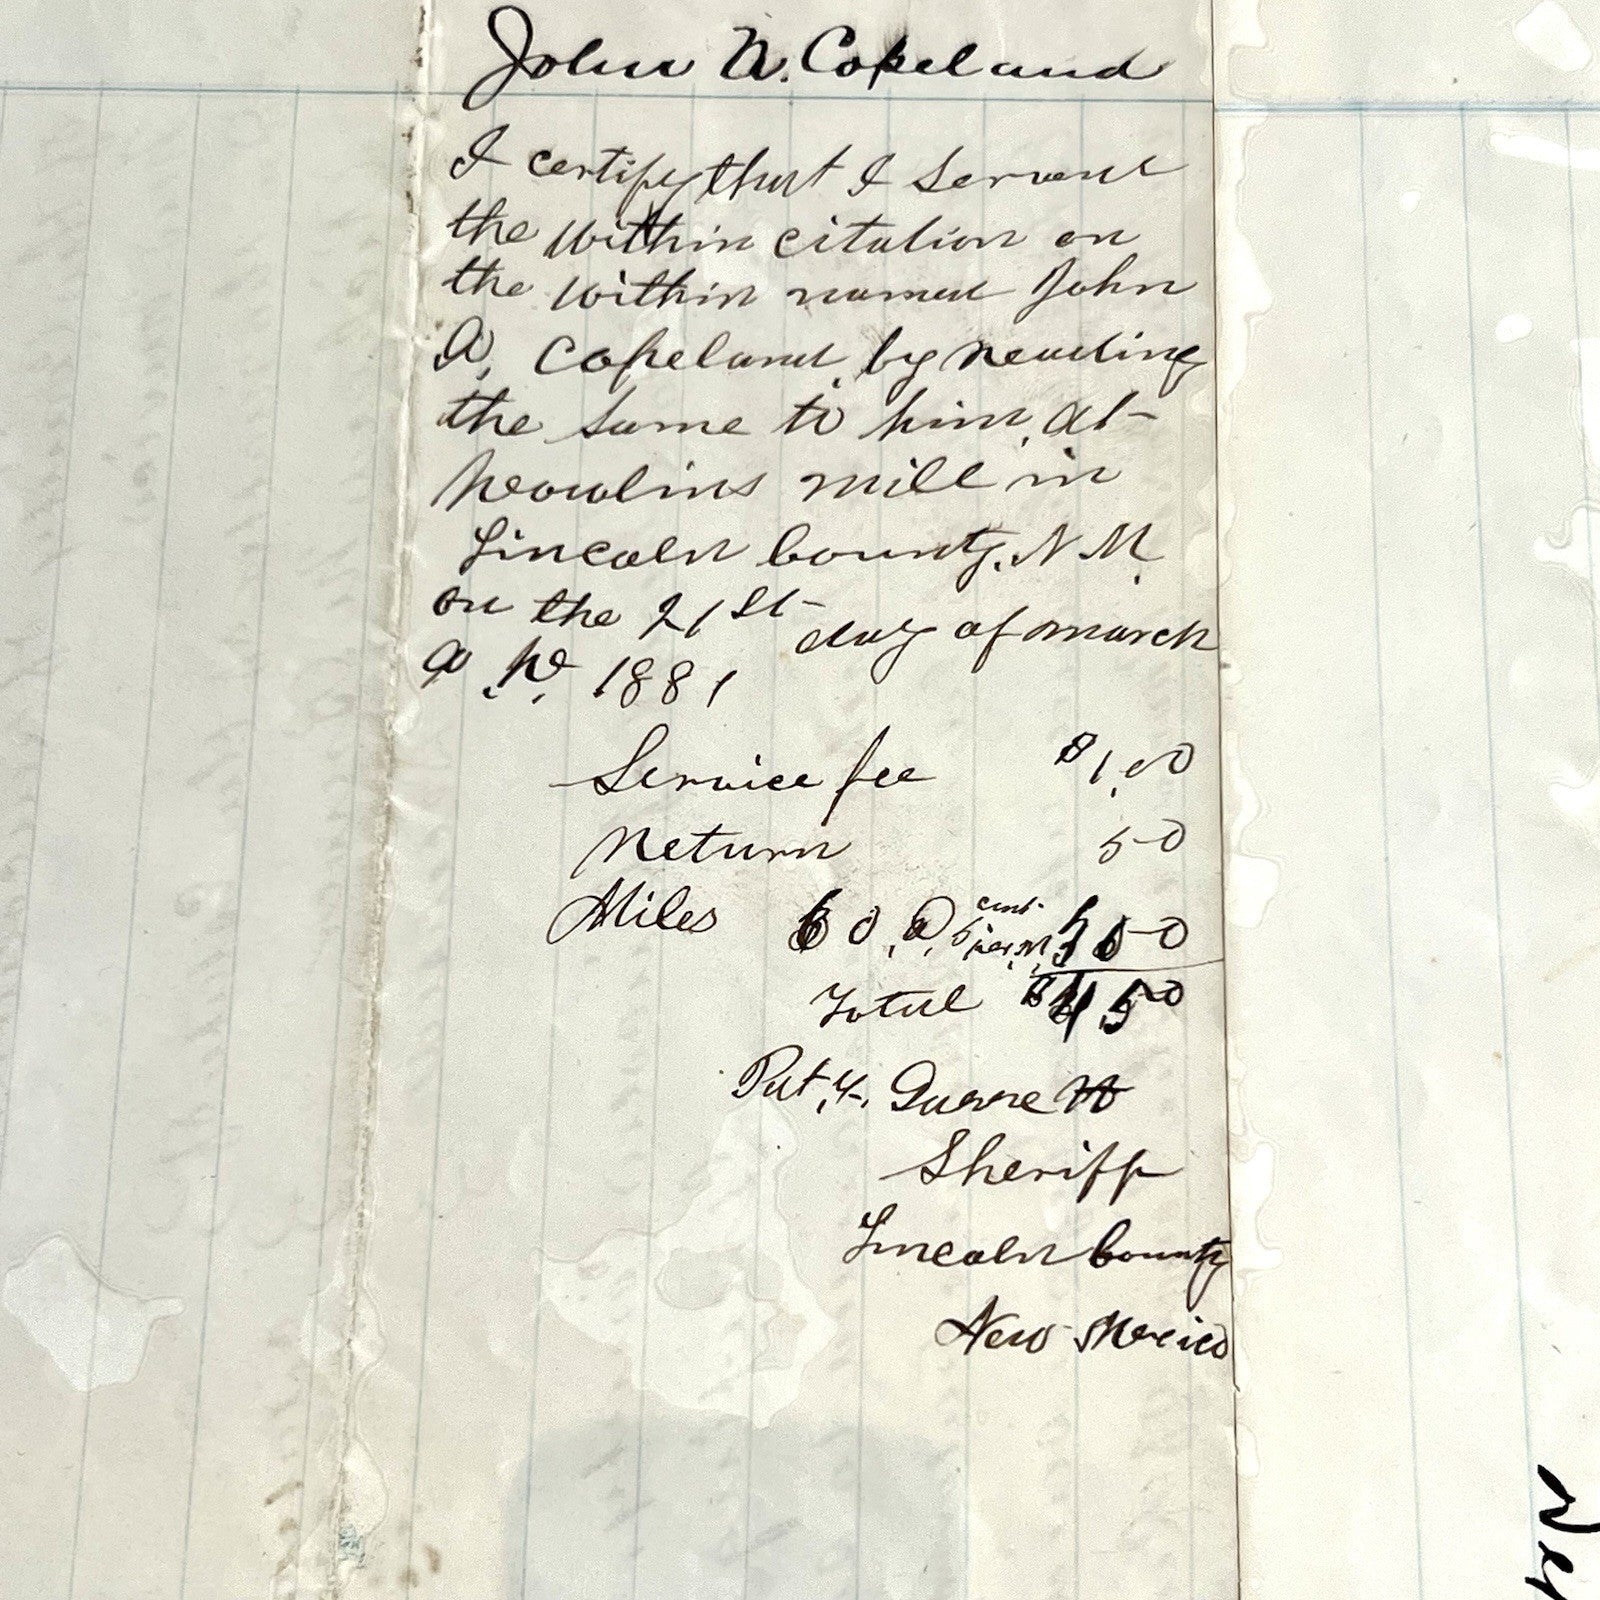 John N. Copeland
I certify that I Served
the within citation on
the within named John
A. Copeland, by reading
the same to him, at
Dowlins mill in
Lincoln County, N M.
on the 21st day of march
A. D. 1881
Service fee $1.00
Return 50
Miles 60. a. 5 cent per. M, 3 00
Total $4.50
Pat. F. Garrett
Sheriff
Lincoln County
New Mexico